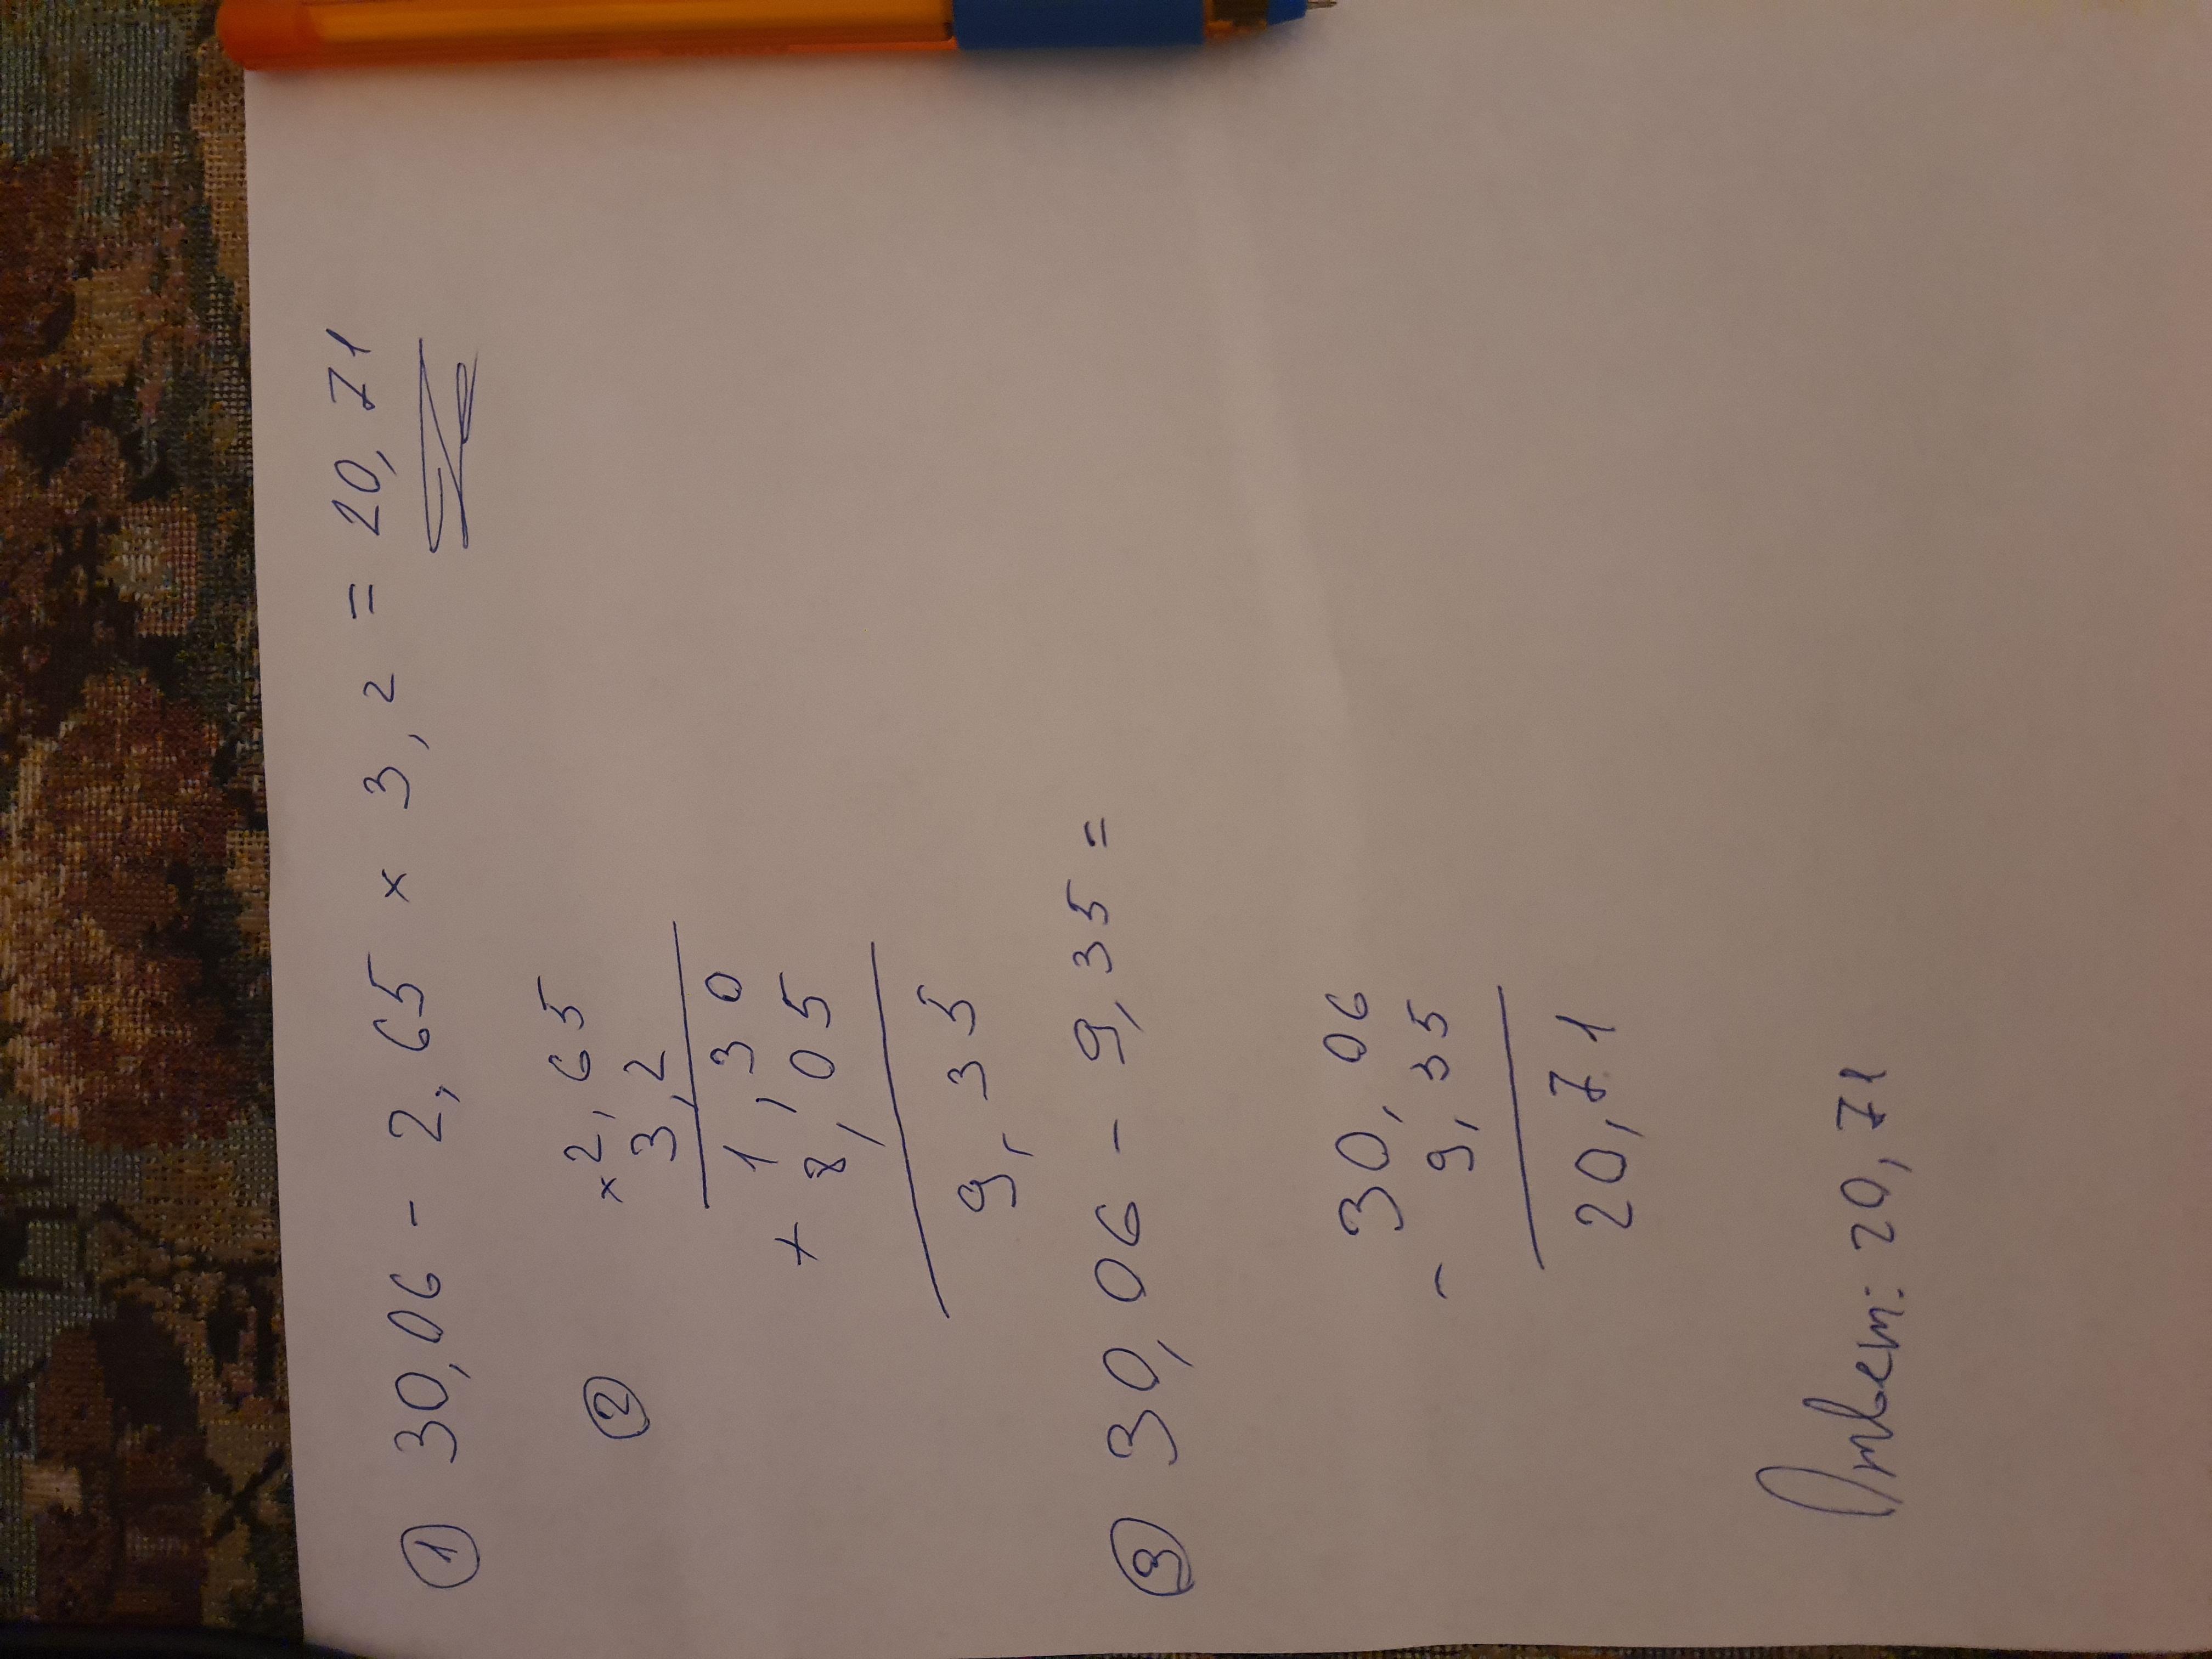 ① 30,06 - 2,65 × 3,2 = 20,71
② × 2,65
3,2
1,30
+ 8,05
9,35
③ 30,06 - 9,35 =
30,06
- 9,35
20,71
Ответ: 20,71